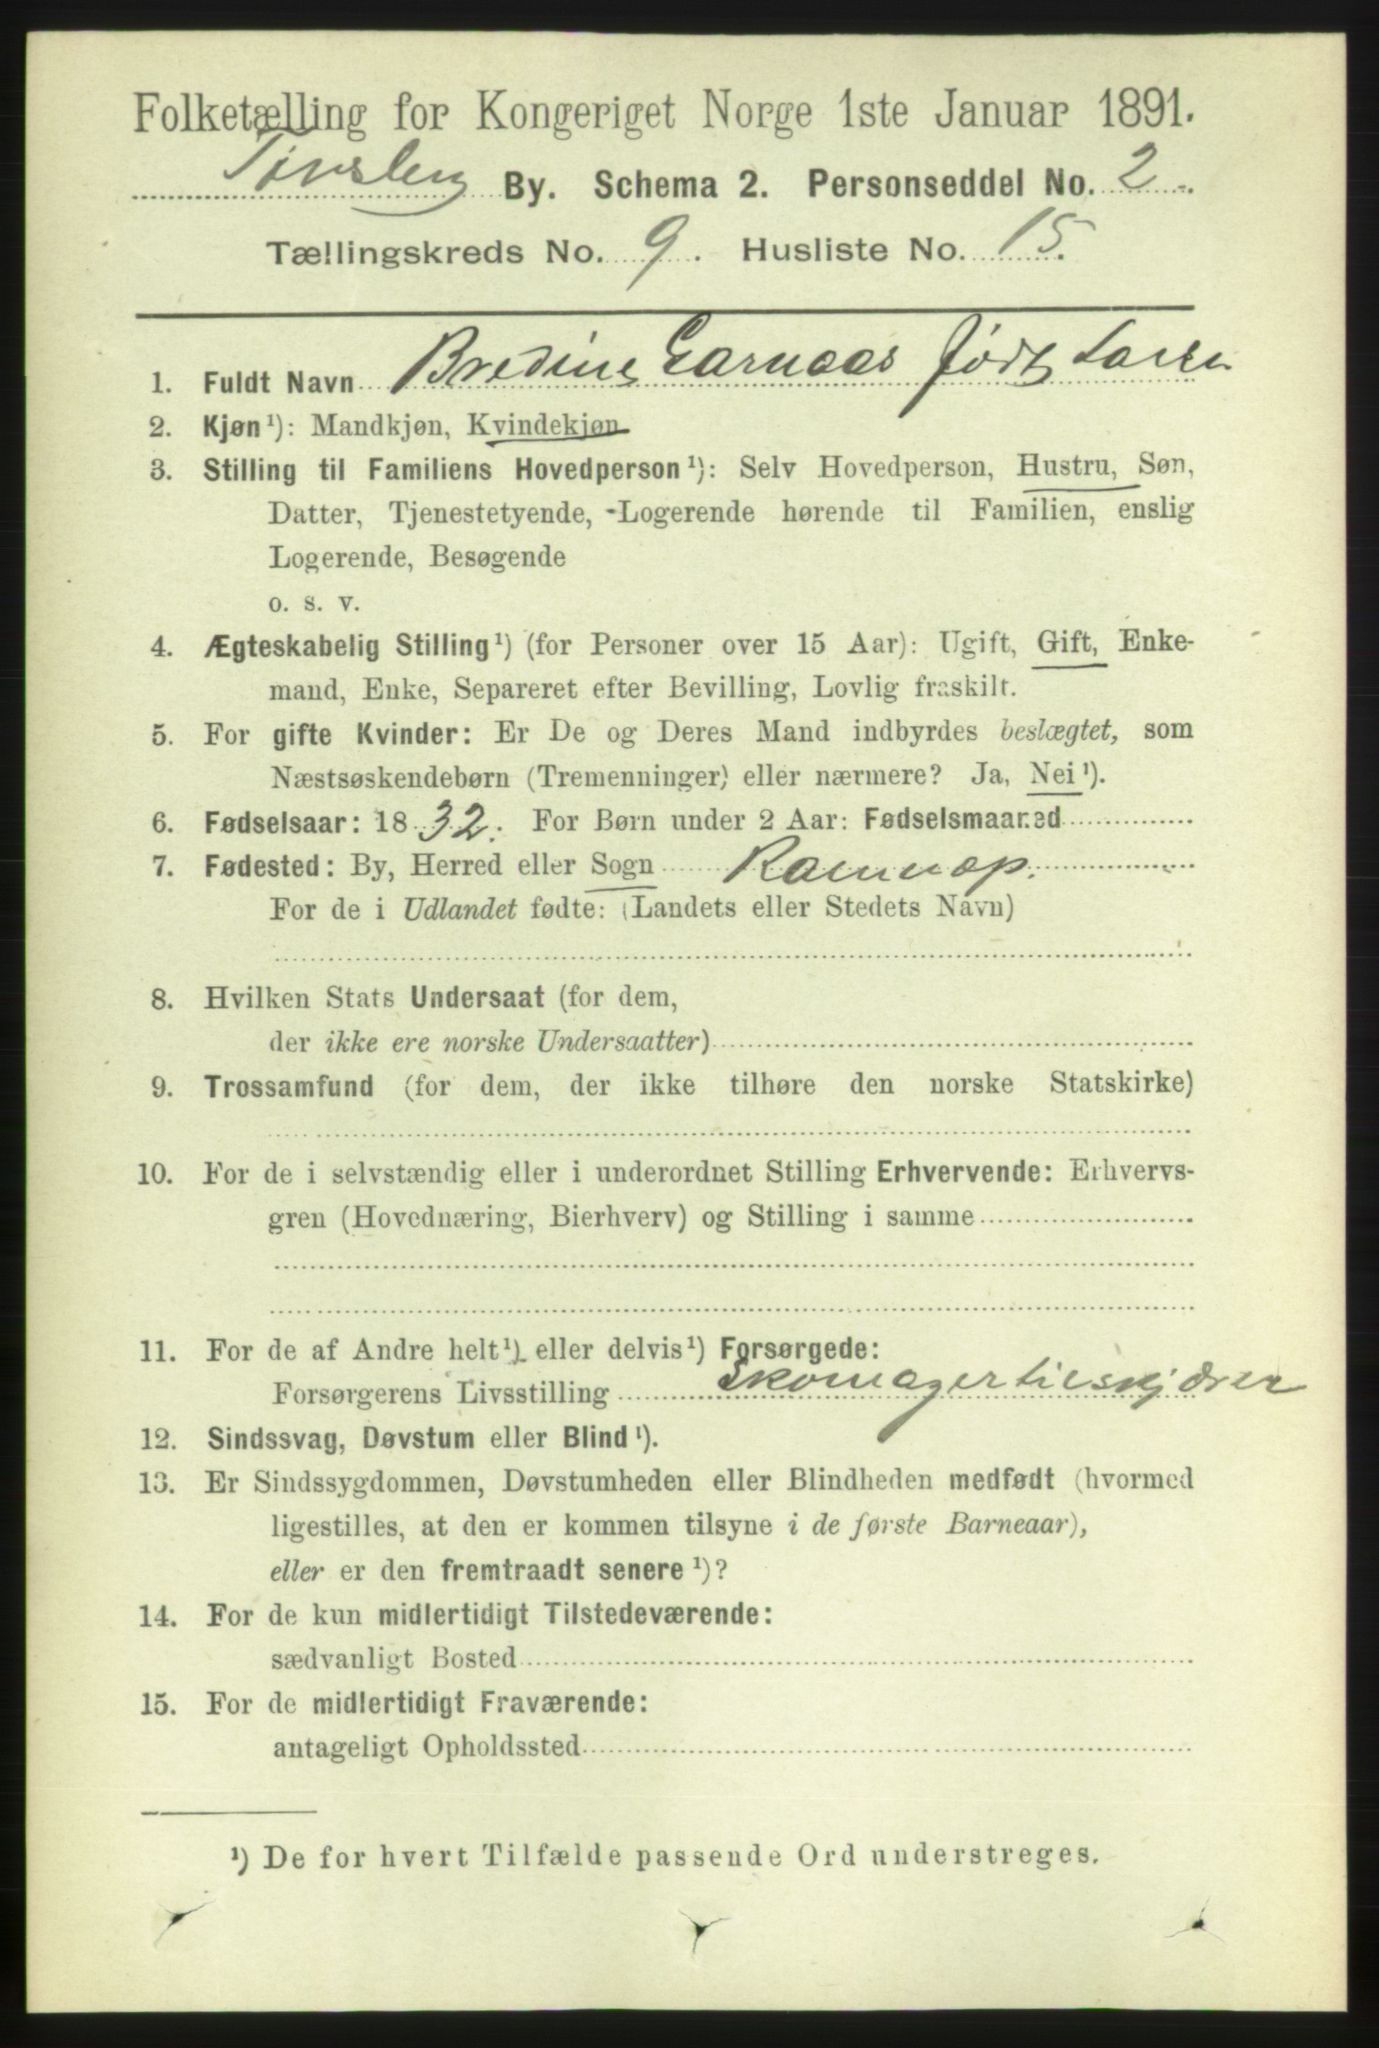 Folketælling for Kongeriget Norge 1ste Januar 1891.
Tønsberg By. Schema 2. Personseddel No. 2.
Tællingskreds No. 9. Husliste No. 15.
1. Fuldt Navn Bredine Garnaas født Larsen
2. Kjøn¹): Mandkjøn, Kvindekjøn
3. Stilling til Familiens Hovedperson¹): Selv Hovedperson, Hustru, Søn,
Datter, Tjenestetyende, Logerende hørende til Familien, enslig
Logerende, Besøgende
o. s. v.
4. Ægteskabelig Stilling¹) (for Personer over 15 Aar): Ugift, Gift, Enke-
mand, Enke, Separeret efter Bevilling, Lovlig fraskilt.
5. For gifte Kvinder: Er De og Deres Mand indbyrdes beslægtet, som
Næstsøskendebørn (Tremenninger) eller nærmere? Ja, Nei¹).
6. Fødselsaar: 1832. For Børn under 2 Aar: Fødselsmaaned
7. Fødested: By, Herred eller Sogn Ramnæs.
For de i Udlandet fødte: (Landets eller Stedets Navn)
8. Hvilken Stats Undersaat (for dem,
der ikke ere norske Undersaatter)
9. Trossamfund (for dem, der ikke tilhøre den norske Statskirke)
10. For de i selvstændig eller i underordnet Stilling Erhvervende: Erhvervs-
gren (Hovednæring, Bierhverv) og Stilling i samme
11. For de af Andre helt¹) eller delvis¹) Forsørgede:
Forsørgerens Livsstilling Skomagertilskjærer
12. Sindssvag, Døvstum eller Blind¹).
13. Er Sindssygdommen, Døvstumheden eller Blindheden medfødt (hvormed
ligestilles, at den er kommen tilsyne i de første Barneaar),
eller er den fremtraadt senere¹)?
14. For de kun midlertidigt Tilstedeværende:
sædvanligt Bosted
15. For de midlertidigt Fraværende:
antageligt Opholdssted
¹) De for hvert Tilfælde passende Ord understreges.